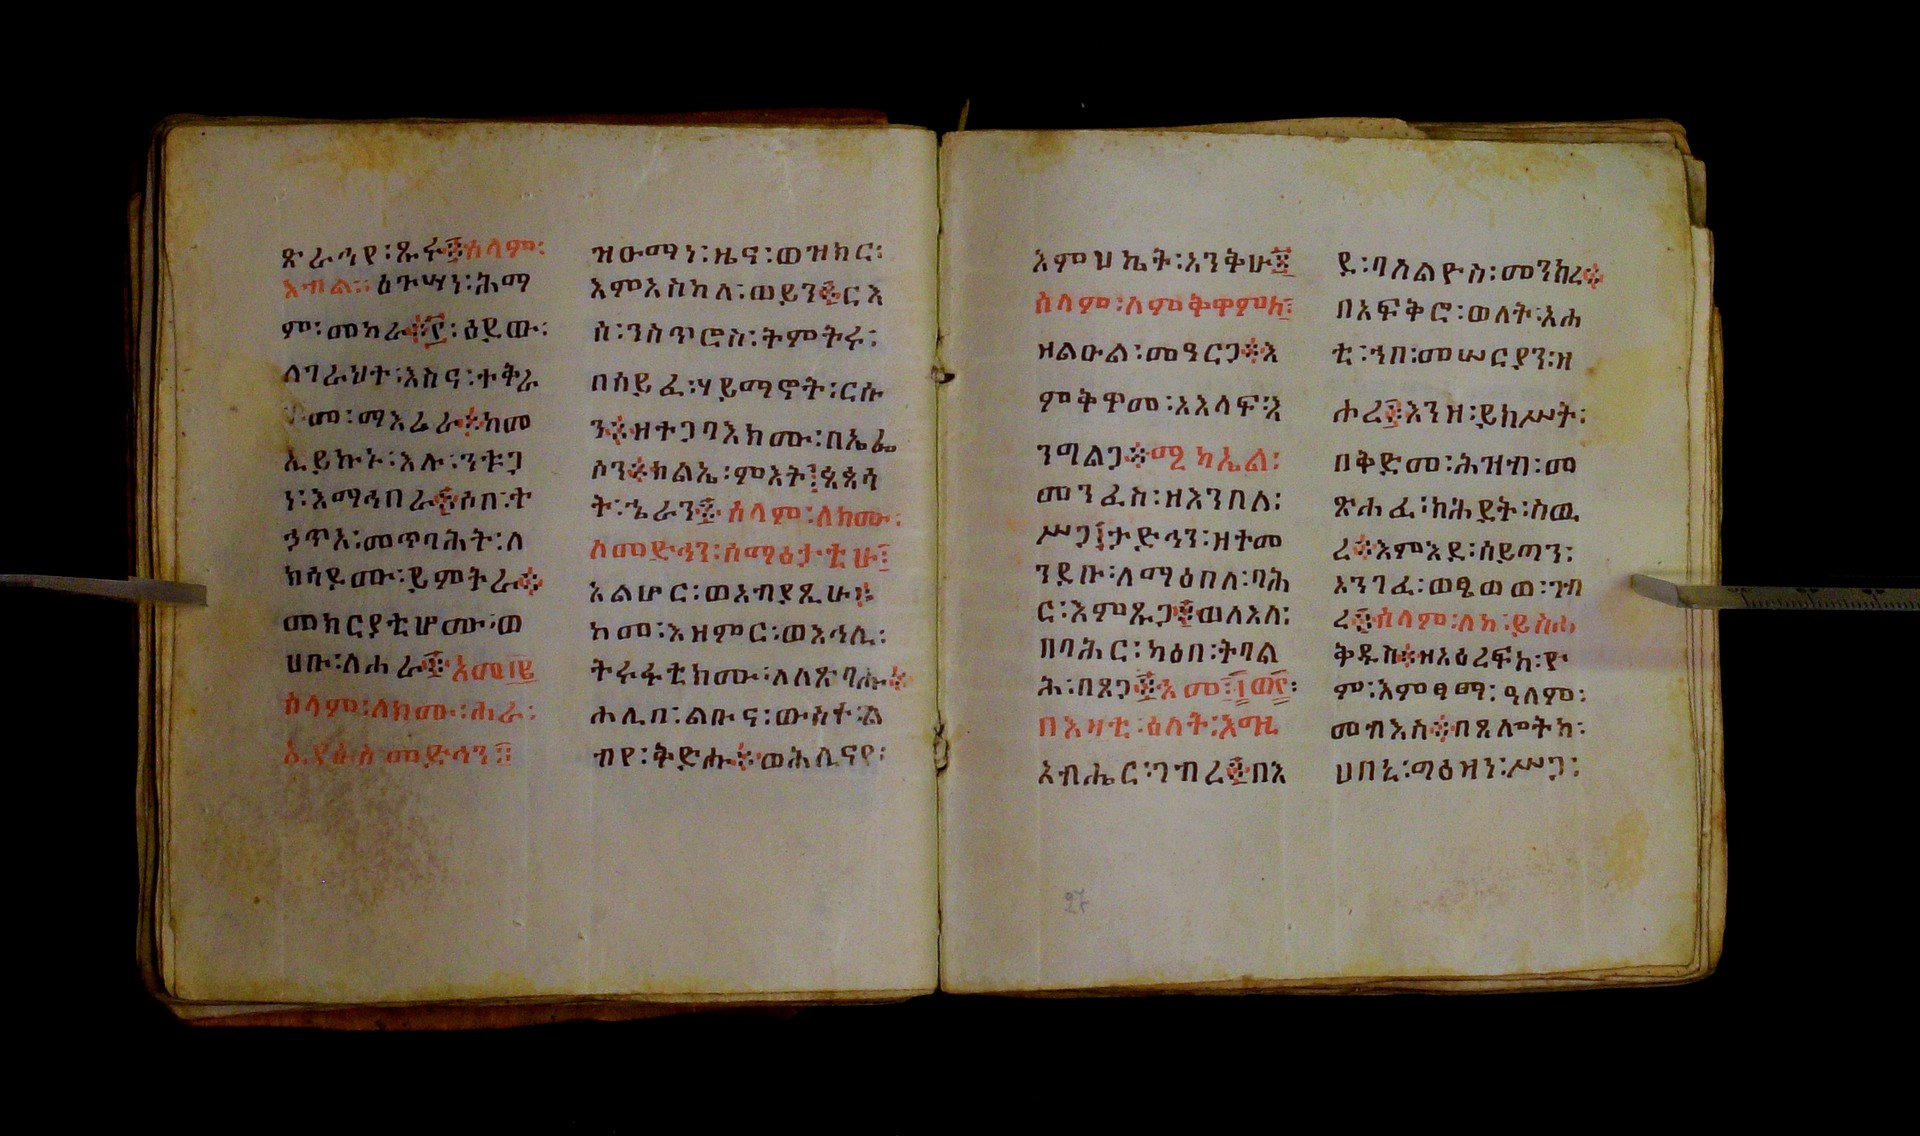 ጽራሐየ፡ጹሩ፨ሰላም፡
እብል፡፡ዕጕሣነ፡ሕማ
ም፡መከራ፨፲፡ዕደው፡
ለገራህተ፡እስና፡ተቅራ
መ፡ማእረራ፨ከመ
ኢይኩኑ፡እሉ፡ንቱጋ
ነ፡እማኅበራ፨ሶበ፡ት
ኃጥእ፡መጥባሕት፡ለ
ክሳዶሙ፡ይምትራ፨
መክርያቲሆሙ፡ወ
ሀቡ፡ለሐራ፨አመ፲፪
ሰላም፡ለክሙ፡ሐራ፡
ኢየሱስ መድኅን፡፡
ዝውማነ፡ዜና፡ወዝክር፡
እምአስከለ፡ወይን፨ርእ
ሰ፡ንስጥሮስ፡ትምትሩ፡
በሰይፈ፡ሃይማኖት፡ርሱ
ን፨ዘተጋባእክሙ፡በኤፌ
ሶን፨ክልኤ፡ምእት፤፶፰ሳ
ት፡ኄራን፨ሰላም፡ለክሙ፡
ሰመድኅን፡ሰማዕታቲሁ፤
እልሆር፡ወአብያጺሁ፨
ከመ፡እዘምር፡ወእኅሊ፡
ትሩፋቲክሙ፡ለለጽባሑ፨
ሐሊበ፡ልቡና፡ውስተ፡ል
ብየ፡ቅድሑ፨ወሕሊናየ፡
እምህኬት፡አንቅሁ፨
ሰላም፡ለምቅዋምከ፤
ዘልዑል፡መዓርጋ፨እ
ምቅዋመ፡አእላፍ፡እ
ንግልጋ፨ሚካኤል፡
መንፈስ፡ዘእንበለ፡
ሥጋ፤ታድኅን፡ዘተመ
ንደቡ፡ለማዕበለ፡ባሕ
ር፡እምጹጋ፨ወለእለ፡
በባሕር፡ካዕበ፡ትባል
ሕ፡በጸጋ፨አመ፡፲ወ፫፡
በእዛቲ፡ዕለት፡እግዚ
አብሔር፡ገብረ፨በእ
ደ፡ባስልዮስ፡መንክረ፨
በአፍቅሮ፡ወለት፡አሐ
ቲ፡ኀበ፡መሠርያን፡ዘ
ሐረ፨እንዘ፡ይክሥት፡
በቅድመ፡ሕዝብ፡መ
ጽሐፈ፡ክሕደት፡ስዉ
ረ፨እምእደ፡ሰይጣን፡
አንገፈ፡ወፄወወ፡ገብ
ረ፨ሰላም፡ለከ፡ይስሐ
ቅዱስ፨ዘአዕረፍከ፡ዮ
ም፡እምፃማ፡ዓለም፡
መብእስ፨በጸሎትከ፡
ሀበኒ፡ማዕዝነ፡ሥጋ፡
27